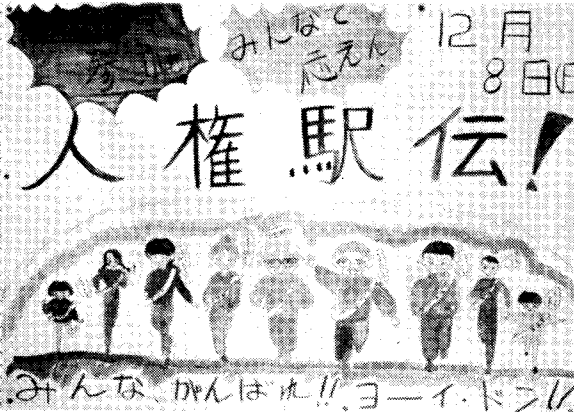 みんなで
応えん
12月
8日(日
人権駅伝!
みんな、がんばれ!!ヨーイ・ドン!!